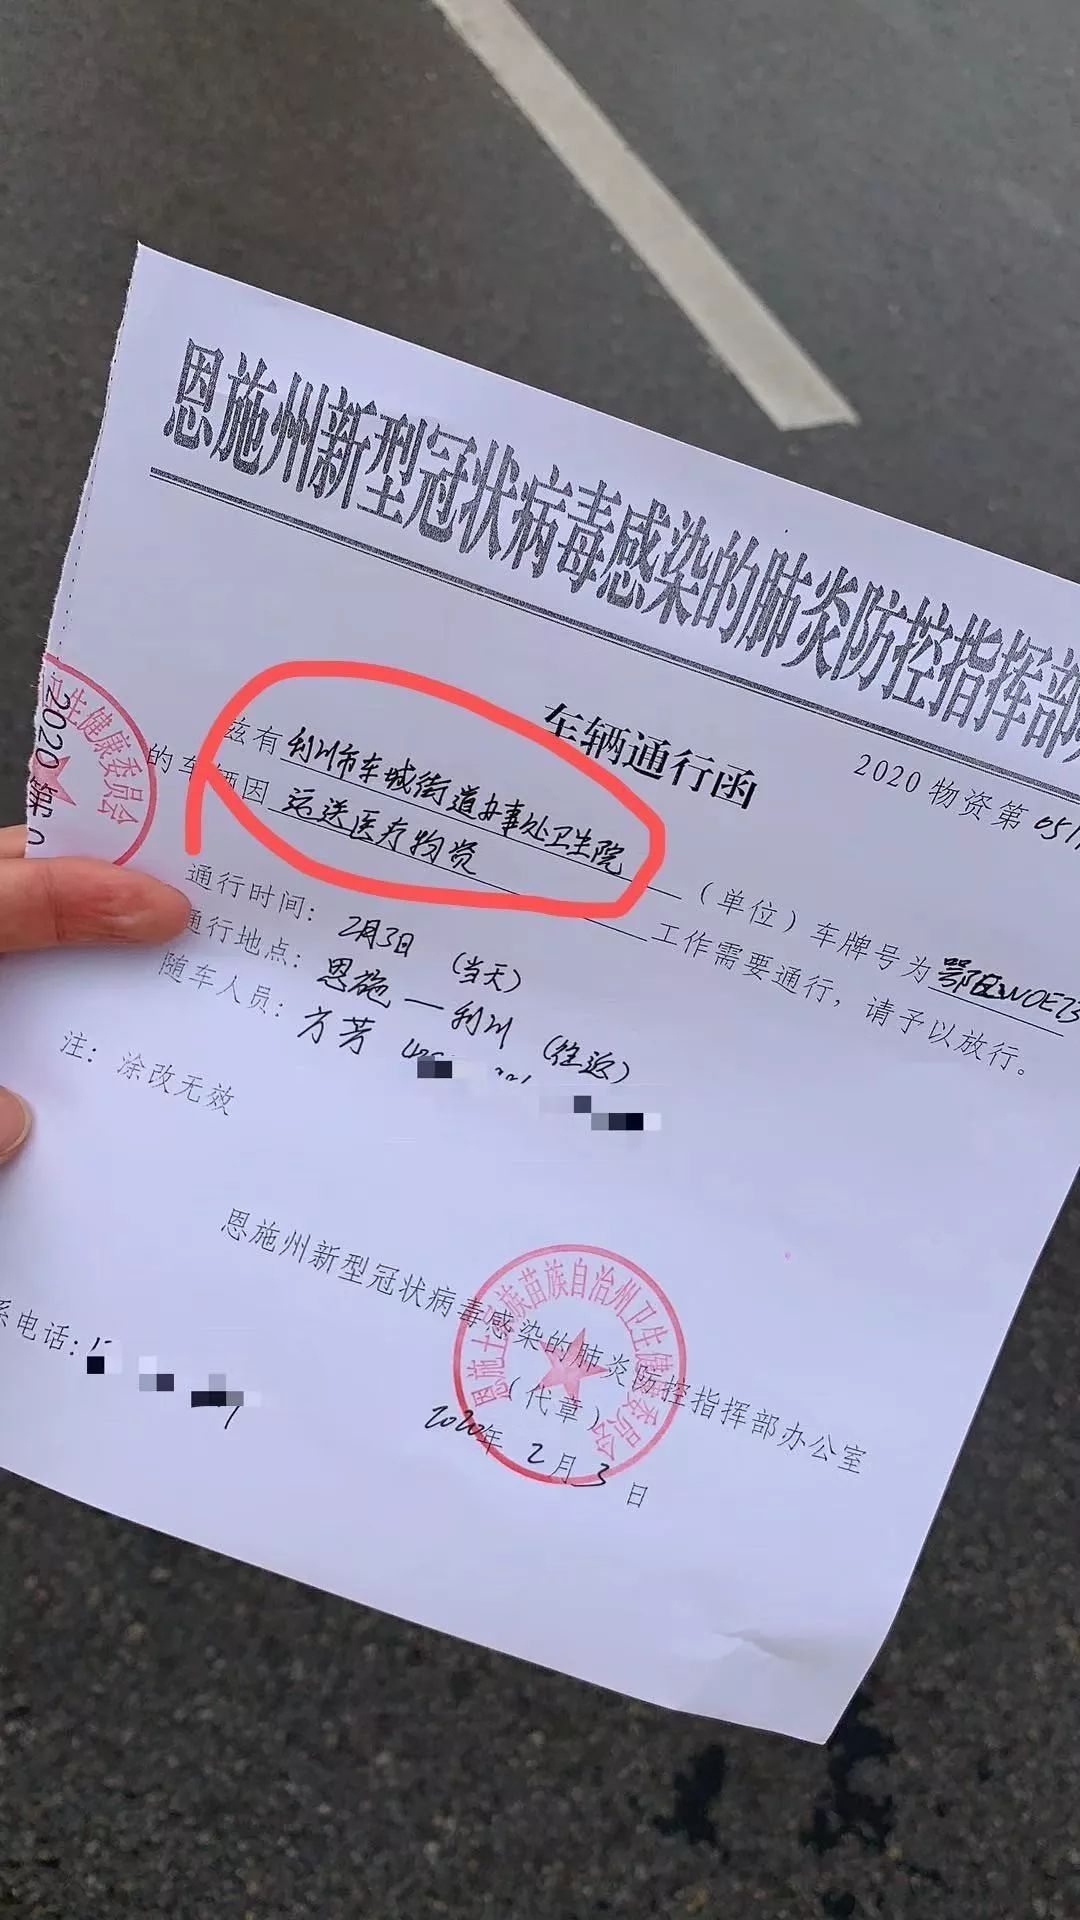 恩施州新型冠状病毒感染的肺炎防控指挥部
车辆通行函
2020物资第051
兹有 利川市车城街道办事处卫生院 （单位）车牌号为 鄂
的车辆因 运送医疗物资 工作需要通行，请予以放行。
通行时间： 2月3日 （当天）
通行地点： 恩施—利川 （往返）
随车人员： 方芳
注：涂改无效
恩施州新型冠状病毒感染的肺炎防控指挥部办公室
（代章）
系电话：
2020年2月3日
恩施土家族苗族自治州卫生健康委员会
卫生健康委员会
2020 第0